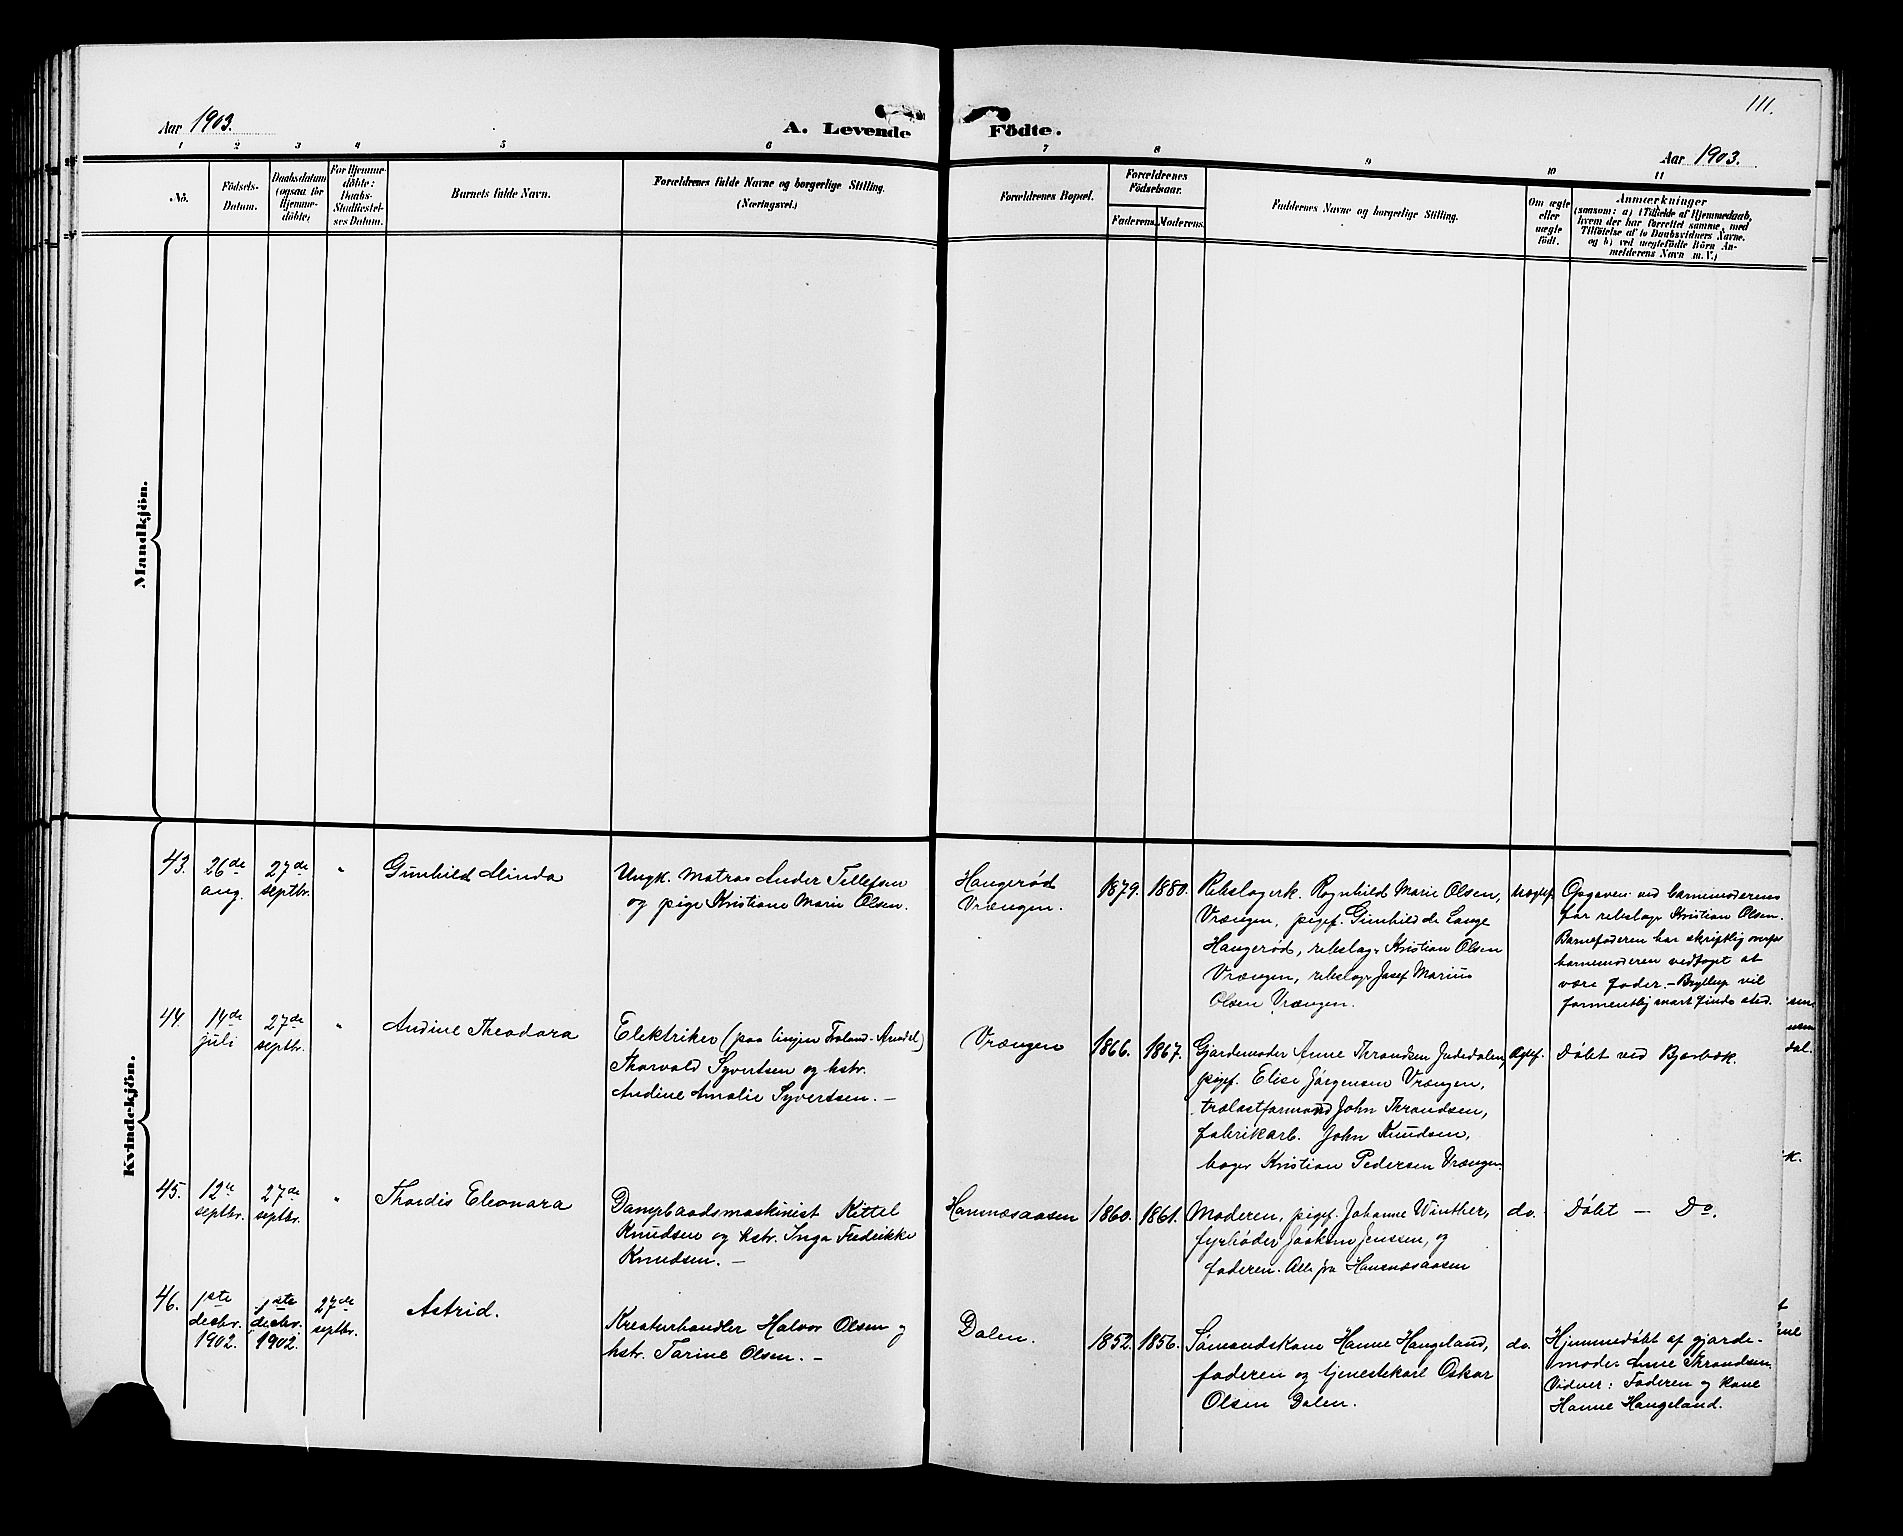 111.
Aar 1903.
A. Levende Födte.
Aar 1903.
1 2 3 4 5 6 7 8 9 10 11
No.
Födsels-
Datum.
Daabsdatum
(ogsaa for
Hjemme-
döbte)
For Hjemme-
döbte:
Daabs-
Stadfæstel-
ses Datum.
Barnets fulde Navn.
Forældrenes fulde Navne og borgerlige Stilling.
(Næringsvei.)
Forældrenes Bopæl.
Forældrenes
Födselsaar.
Faderens. Moderens.
Faddernes Navne og borgerlige Stilling.
Om ægte
eller
uægte
födt.
Anmærkninger
(saasom: a) i Tilfælde af Hjemmedaab,
hvem der har forrettet samme, med
Tilföielse af to Daabsvidners Navne,
og b) ved uægtefödte Börn An-
melderens Navn m. V.)
Mandkjön.
Kvindekjön.
43.
26de
aug.
27de
septbr.
"
Gunhild Minda
Ungk. matros Ander Tellefsen
og pige Kristiane Marie Olsen.
Hangerød
Vrængen.
1879. 1880.
Rebslagerk. Ragnhild Marie Olsen,
Vrængen, pigef. Gunhild de Lange
Hangerød, rebslag. Kristian Olsen
Vrængen, rebslag. Josef Marius
Olsen Vrængen.
Uægtef.
Opgaven ved barnemoderens
far rebslag. Kristian Olsen.
Barnefaderen har skriftlig overfor
barnemoderen vedtaget at
være fader. – Bryllup vil
formentlig snart finde sted.
44.
14de
juli
27de
septbr.
"
Andine Theodora
Elektriker (paa linjen Froland-Arendal)
Thorvald Syvertsen og hstr.
Andine Amalie Syvertsen. –
Vrængen
1866. 1867.
Gjordemoder Anne Throndsen Jutedalen,
pigef. Elise Jørgensen Vrængen,
trælastformand John Throndsen,
fabrikarb. John Knudsen,
bager Kristian Pedersen Vrængen.
Ægtef.
Døbt ved Bjorbæk.
45.
12te
septbr.
27de
septbr.
"
Thordis Eleonora
Dampbaadsmaskinist Kittel
Knudsen og hstr. Inga Fredrikke
Knudsen. –
Hansnæsaasen
1860. 1861.
Moderen, pigef. Johanne Winther,
fyrbøder Joakim Jenssen, og
faderen. Alle fra Hansnæsaasen
do.
Døbt – Do.
46.
1ste
decbr.
1902.
1ste
decbr.
1902.
27de
septbr.
Astrid.
Kreaturhandler Halvor Olsen og
hstr. Tarine Olsen. –
Dalen.
1852. 1856.
Sømandskone Hanne Hangeland,
faderen og tjenestekarl Oskar
Olsen Dalen.
do.
Hjemmedøbt af gjorde-
moder Anne Throndsen.
Vidner: Faderen og kone
Hanne Hangeland.